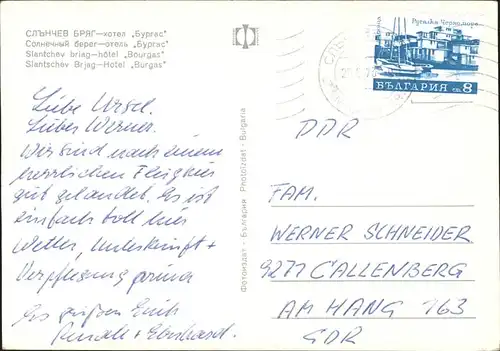 СЛЪНЧЕВ БРЯГ—хотел „Бургас"
Солнечный берег—отель „Бургас"
Slantchev briag—hôtel „Bourgas"
Slantschev Brjag—Hotel „Burgas"
Liebe Ursel.
Lieber Werner.
Wir sind nach einem
herrlichen Flug hier
gut gelandet. Es ist
einfach toll hier
Wetter, Unterkunft +
Verpflegung prima
Es grüßen Euch
+ Eberhard.
Фотоиздат - България Photoizdat - Bulgaria
Русалка Черноморе
БЪЛГАРИЯ ст. 8
DDR
FAM.
WERNER SCHNEIDER
9271 CALLENBERG
AM HANG 163
GDR